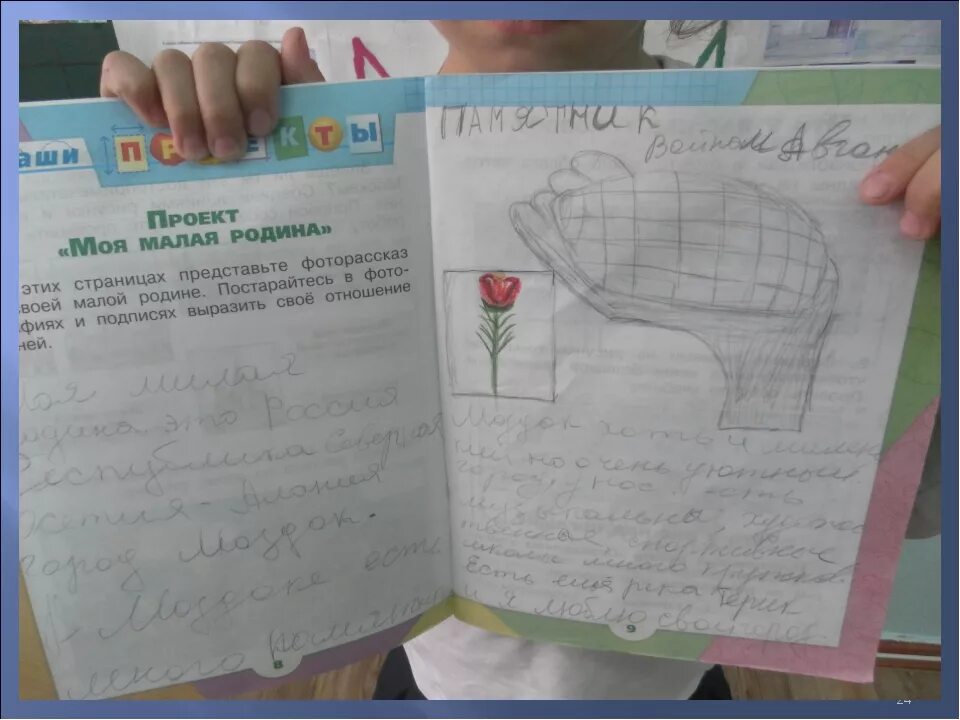 аши ПРОЕКТЫ
ПРОЕКТ
«МОЯ МАЛАЯ РОДИНА»
этих страницах представьте фоторассказ
своей малой родине. Постарайтесь в фото-
афиях и подписях выразить своё отношение
ней.
оя милая
одина это Россия
Республика Северная
Осетия - Алания
город Моздок.
В Моздоке есть
много
8
ПАМЯТНИК
Войном Авган
Моздок хоть и
но очень уютный
город, у нас есть
музыкальны,
спортивные
школы много кружков.
Есть ещё река Терик
и я люблю свой город.
9
24